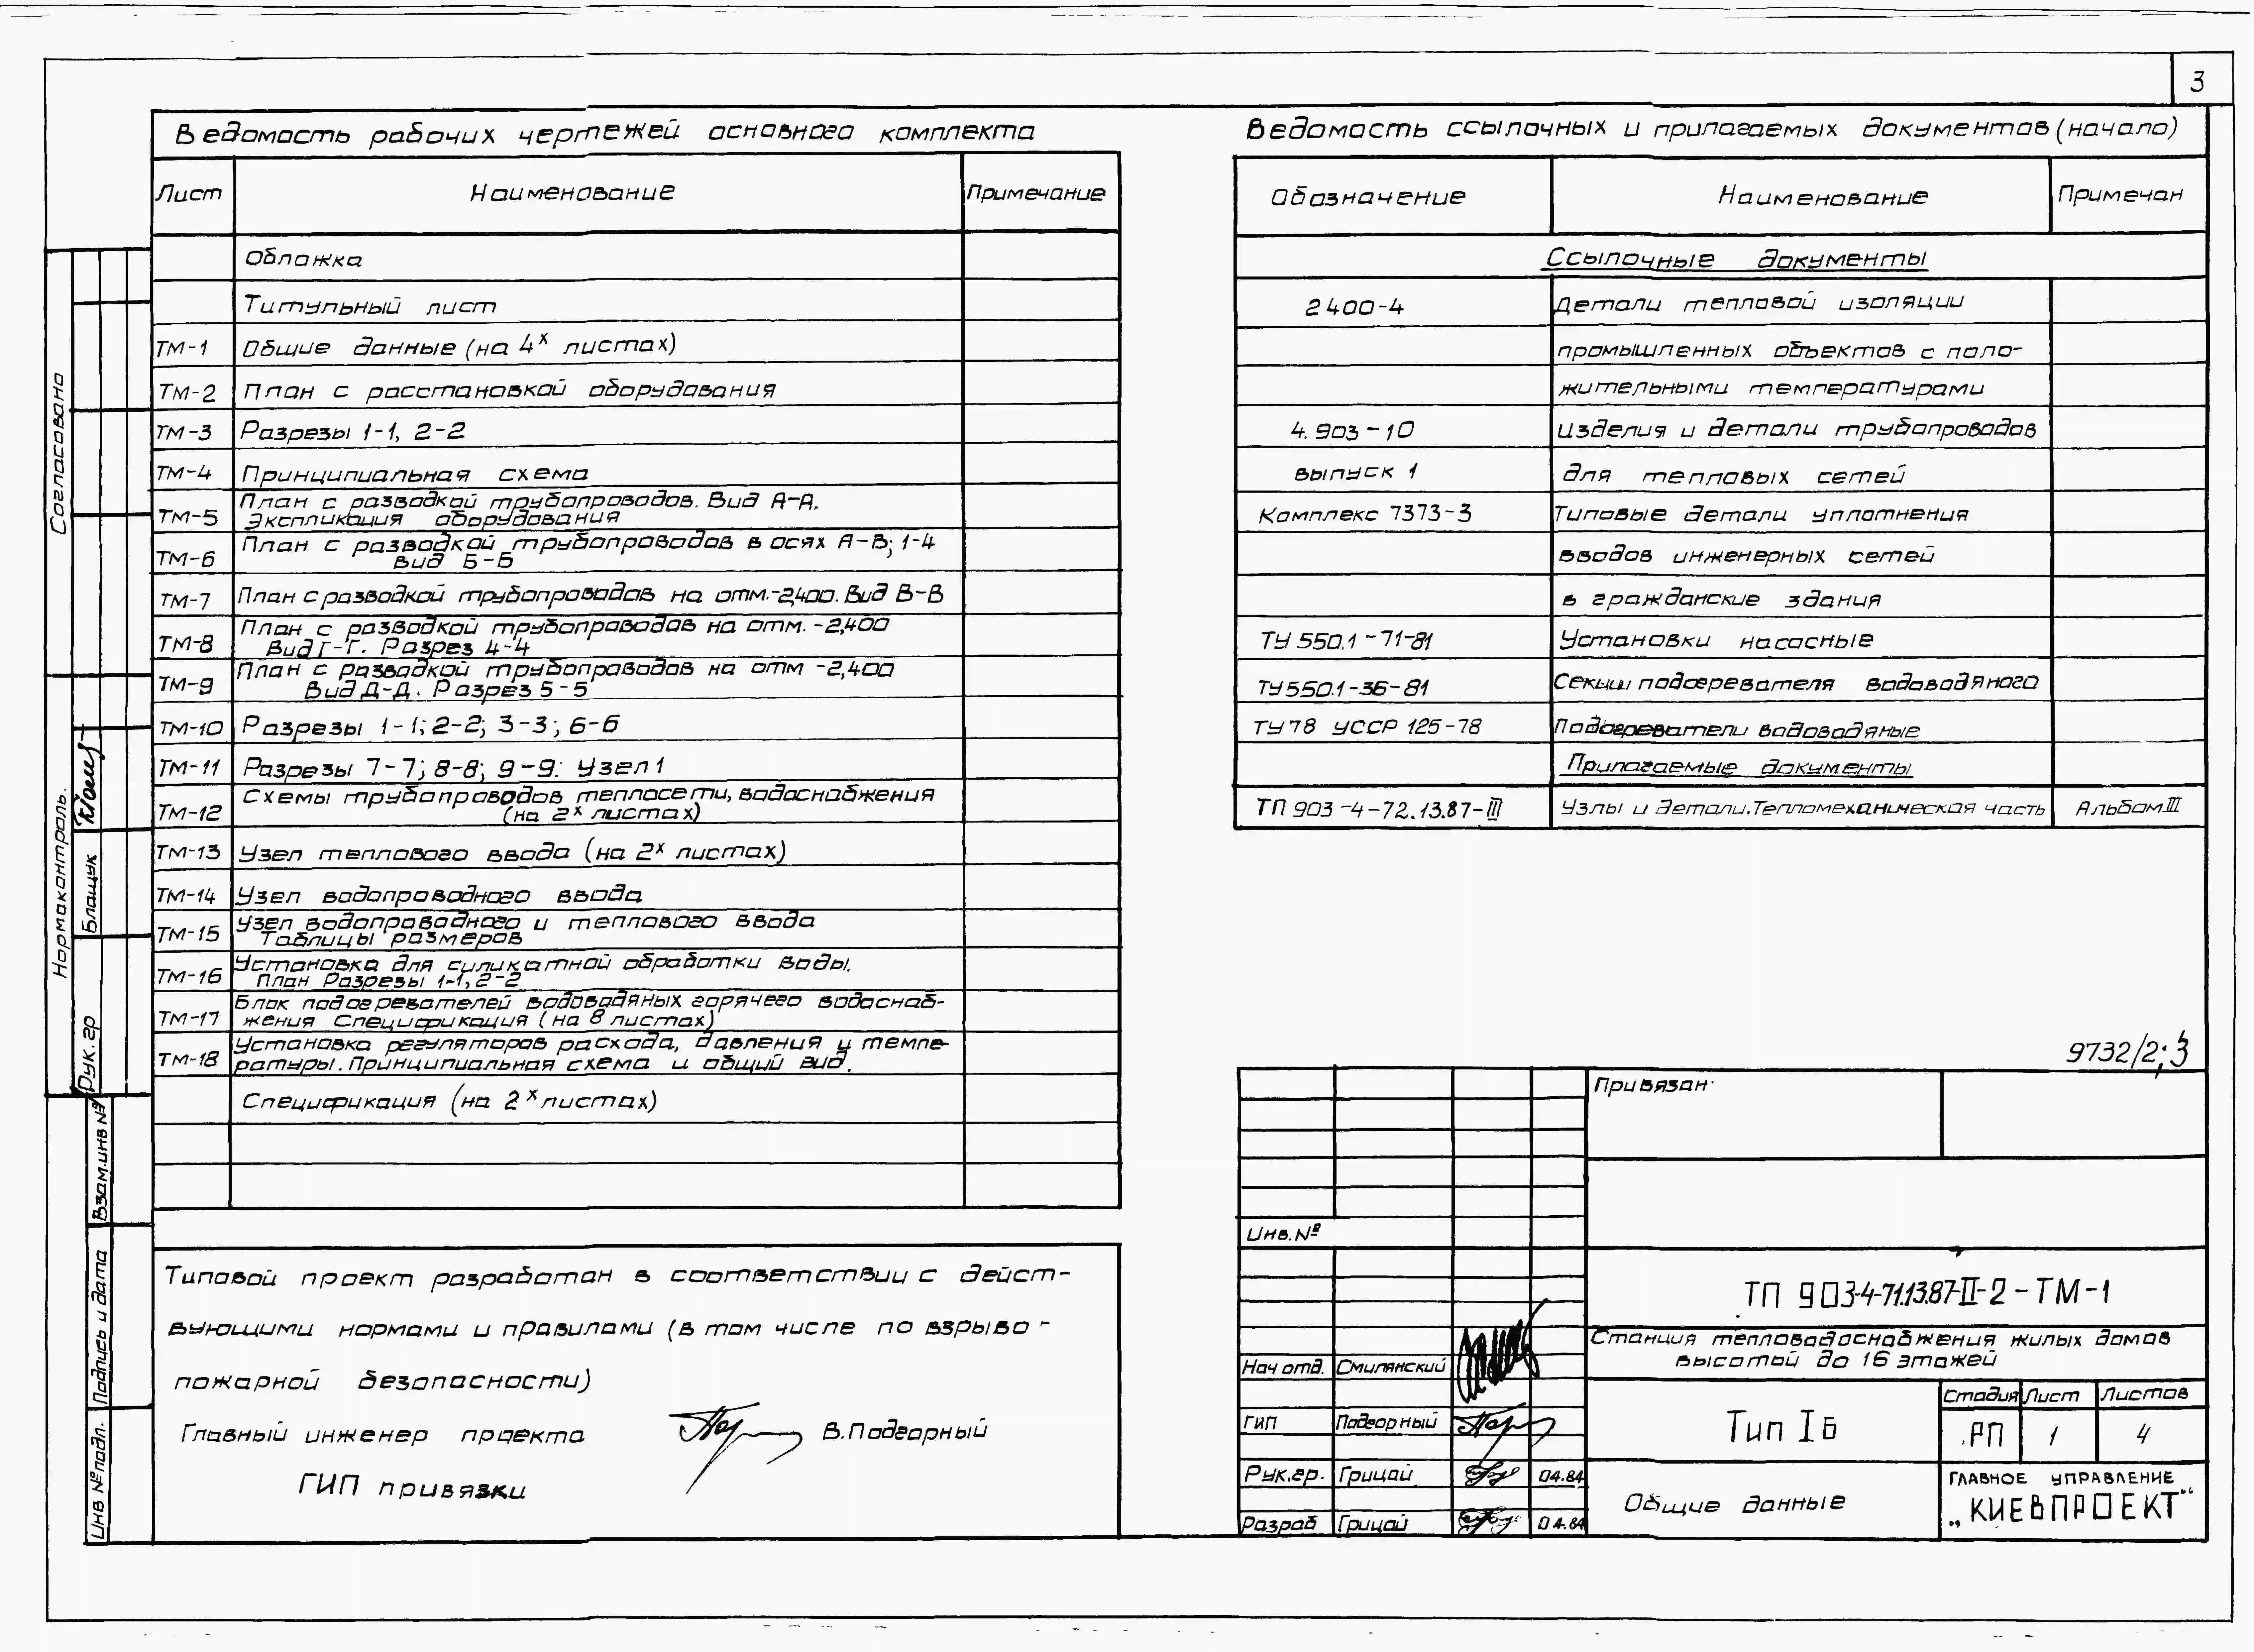 3
Ведомость рабочих чертежей основного комплекта
Лист Наименование Примечание
Обложка
Титульный лист
ТМ-1 Общие данные (на 4х листах)
ТМ-2 План с расстановкой оборудования
ТМ-3 Разрезы 1-1, 2-2
ТМ-4 Принципиальная схема
ТМ-5 План с разводкой трубопроводов. Вид А-А.
Экспликация оборудования
ТМ-6 План с разводкой трубопроводов в осях А-В; 1-4
Вид Б-Б
ТМ-7 План с разводкой трубопроводов на отм.-2,400. Вид В-В
ТМ-8 План с разводкой трубопроводов на отм. -2,400
Вид Г-Г. Разрез 4-4
ТМ-9 План с разводкой трубопроводов на отм -2,400
Вид Д-Д. Разрез 5-5
ТМ-10 Разрезы 1-1; 2-2; 3-3; 6-6
ТМ-11 Разрезы 7-7; 8-8; 9-9. Узел 1
ТМ-12 Схемы трубопроводов теплосети, водоснабжения
(на 2х листах)
ТМ-13 Узел теплового ввода (на 2х листах)
ТМ-14 Узел водопроводного ввода
ТМ-15 Узел водопроводного и теплового ввода
Таблицы размеров
ТМ-16 Установка для силикатной обработки воды.
План Разрезы 1-1, 2-2
ТМ-17 Блок подогревателей водоводяных горячего водоснаб-
жения Спецификация (на 8 листах)
ТМ-18 Установка регуляторов расхода, давления и темпе-
ратуры. Принципиальная схема и общий вид.
Спецификация (на 2х листах)
Типовой проект разработан в соответствии с дейст-
вующими нормами и правилами (в том числе по взрыво-
пожарной безопасности)
Главный инженер проекта В. Подгорный
ГИП привязки
Ведомость ссылочных и прилагаемых документов (начало)
Обозначение Наименование Примечан
Ссылочные документы
2400-4 Детали тепловой изоляции
промышленных объектов с поло-
жительными температурами
4.903-10 Изделия и детали трубопроводов
выпуск 1 для тепловых сетей
Комплекс 7373-3 Типовые детали уплотнения
вводов инженерных сетей
в гражданские здания
ТУ 550.1-71-81 Установки насосные
ТУ 550.1-36-81 Секции подогревателя водоводяного
ТУ 78 УССР 125-78 Подогреватели водоводяные
Прилагаемые документы
ТП 903-4-72.13.87-III Узлы и детали. Тепломеханическая часть Альбом III
9732/2; 3
Привязан
Инв. №
ТП 903-4-71.13.87-II-2-ТМ-1
Станция тепловодоснабжения жилых домов
высотой до 16 этажей
Нач отд. Смилянский
ГИП Подгорный
Рук. гр. Грицай 04.84
Разраб Грицай 04.84
Тип IБ
Стадия Лист Листов
РП 1 4
Общие данные
ГЛАВНОЕ УПРАВЛЕНИЕ
„КИЕВПРОЕКТ“
Согласовано
Нормаконтроль.
Рук. гр Блащук
Взам. инв №
Подпись и дата
Инв № подл.